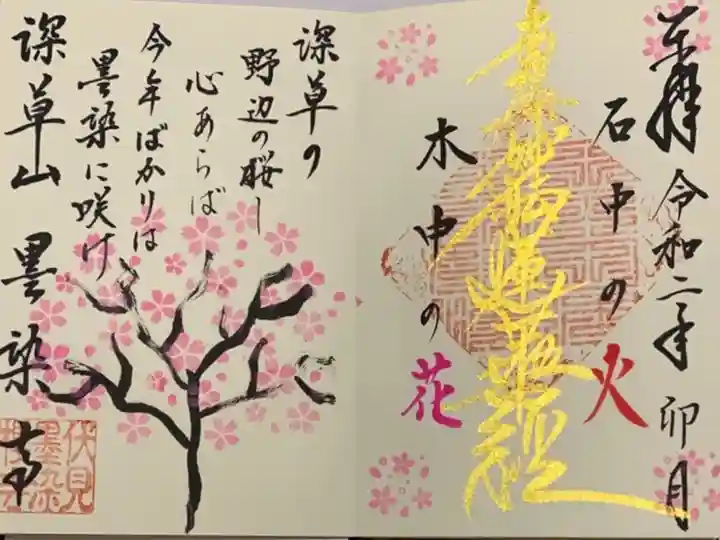 奉拝 令和二年 卯月
石中の火
南無妙法蓮華経
木中の花
深草の
野辺の桜し
心あらば
今年ばかりは
墨染に咲け
深草山 墨染寺